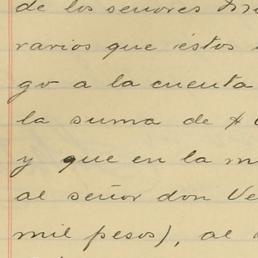 de los señores
rarios que éstos
go a la cuenta
la suma de $
y que en la m
al señor don Ve
mil pesos), al